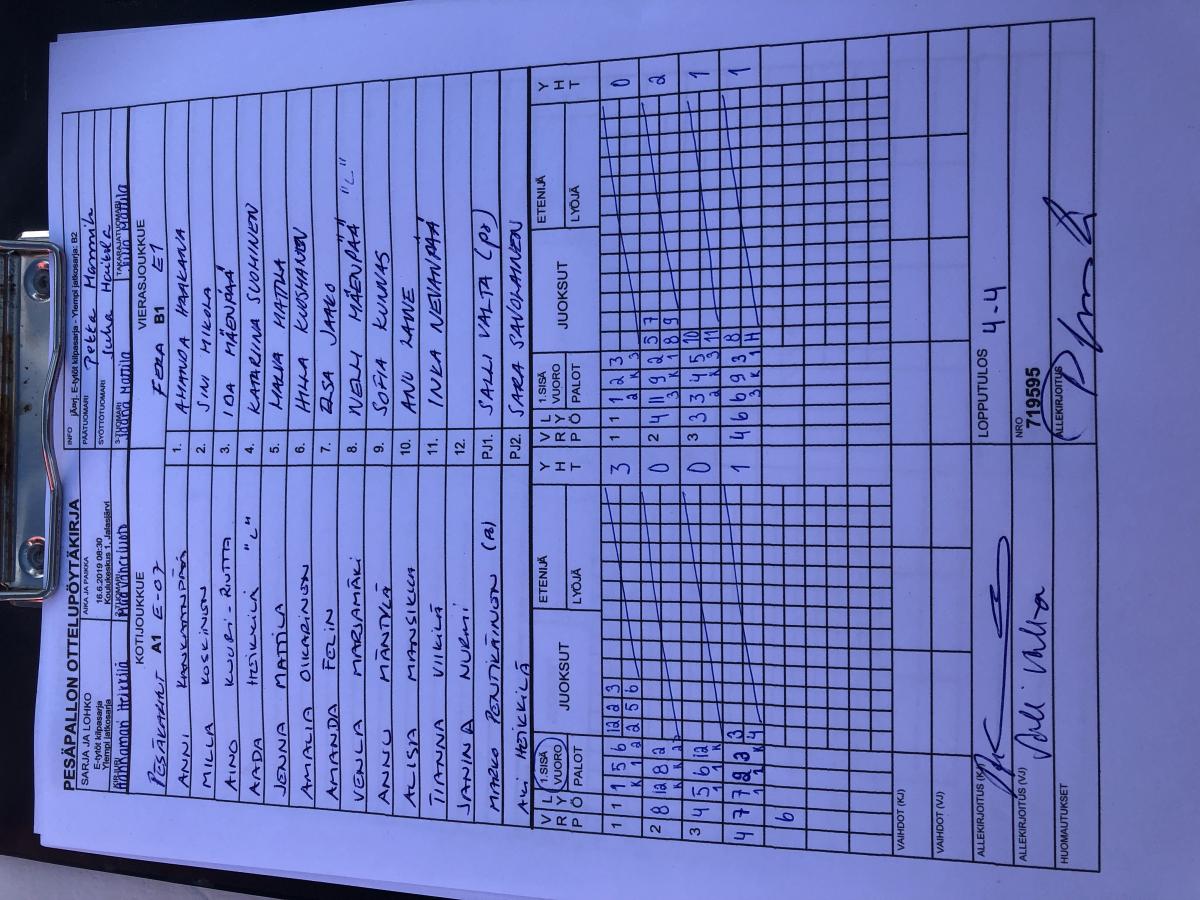 PESÄPALLON OTTELUPÖYTÄKIRJA
SARJA JA LOHKO
E-tytöt kilpasarja
Ylempi jatkosarja
AIKA JA PAIKKA
16.6.2019 08:30
Koulukeskus 1, Jalasjärvi
INFO jÄarj. E-tytöt kilpasarja - Ylempi jatkosarja: B2
PÄÄTUOMARI Pekka
SYÖTTÖTUOMARI Juha
KIRJURI Annamari Heikkilä
2-TUOMARI
3-TUOMARI Jaana Mattila
TAKARAJATUOMARI Mattila
KOTIJOUKKUE
VIERASJOUKKUE
PESÄKARHUT A1 E-07
FERA B1 E1
ANNI KANKAANPÄÄ 1. AMANDA HAAKANA
MILLA KOSKINEN 2. SINI MIKOLA
AINO KUURI-RIUTTA 3. IDA MÄENPÄÄ
AADA HEIKKILÄ "L" 4. KATARIINA SUOMINEN
JENNA MATTILA 5. MALVA MATTILA
AMALIA OIKARINEN 6. HILLA KUOSMANEN
AMANDA FELIN 7. ELSA JAAKO
VENLA MARJAMÄKI 8. NELLI MÄENPÄÄ "L"
ANNU MÄNTYLÄ 9. SOFIA KUNNAS
ALISA MANSIKKA 10. ANU LAINE
TIANNA VIIKILÄ 11. INKA NEVANPÄÄ
JANINA NURMI 12.
MARKO PENTIKÄINEN (PJ) PJ1. SALLI VALTA (PJ)
AKI HEIKKILÄ PJ2. SARA SAVOLAINEN
V R P L Y Ö 1.SISÄ VUORO PALOT JUOKSUT ETENIJÄ LYÖJÄ Y H T
V R P L Y Ö 1.SISÄ VUORO PALOT JUOKSUT ETENIJÄ LYÖJÄ Y H T
1 1 1 5 6 12 2 3 3
K 1 2 2 5 6
1 1 1 2 3 0
2 K 3
2 8 12 8 2 0
2 4 11 9 2 5 7 2
3 K 1 8 9
3 4 5 6 12 0
3 3 4 5 10 1
2 K 3 11
4 7 7 2 2 3 1
1 1 K 4
4 6 6 9 3 8 1
3 K 1 H
6
VAIHDOT (KJ)
VAIHDOT (VJ)
ALLEKIRJOITUS (KJ)
LOPPUTULOS 4-4
ALLEKIRJOITUS (VJ) Salli Valta
NRO
719595
HUOMAUTUKSET
ALLEKIRJOITUS